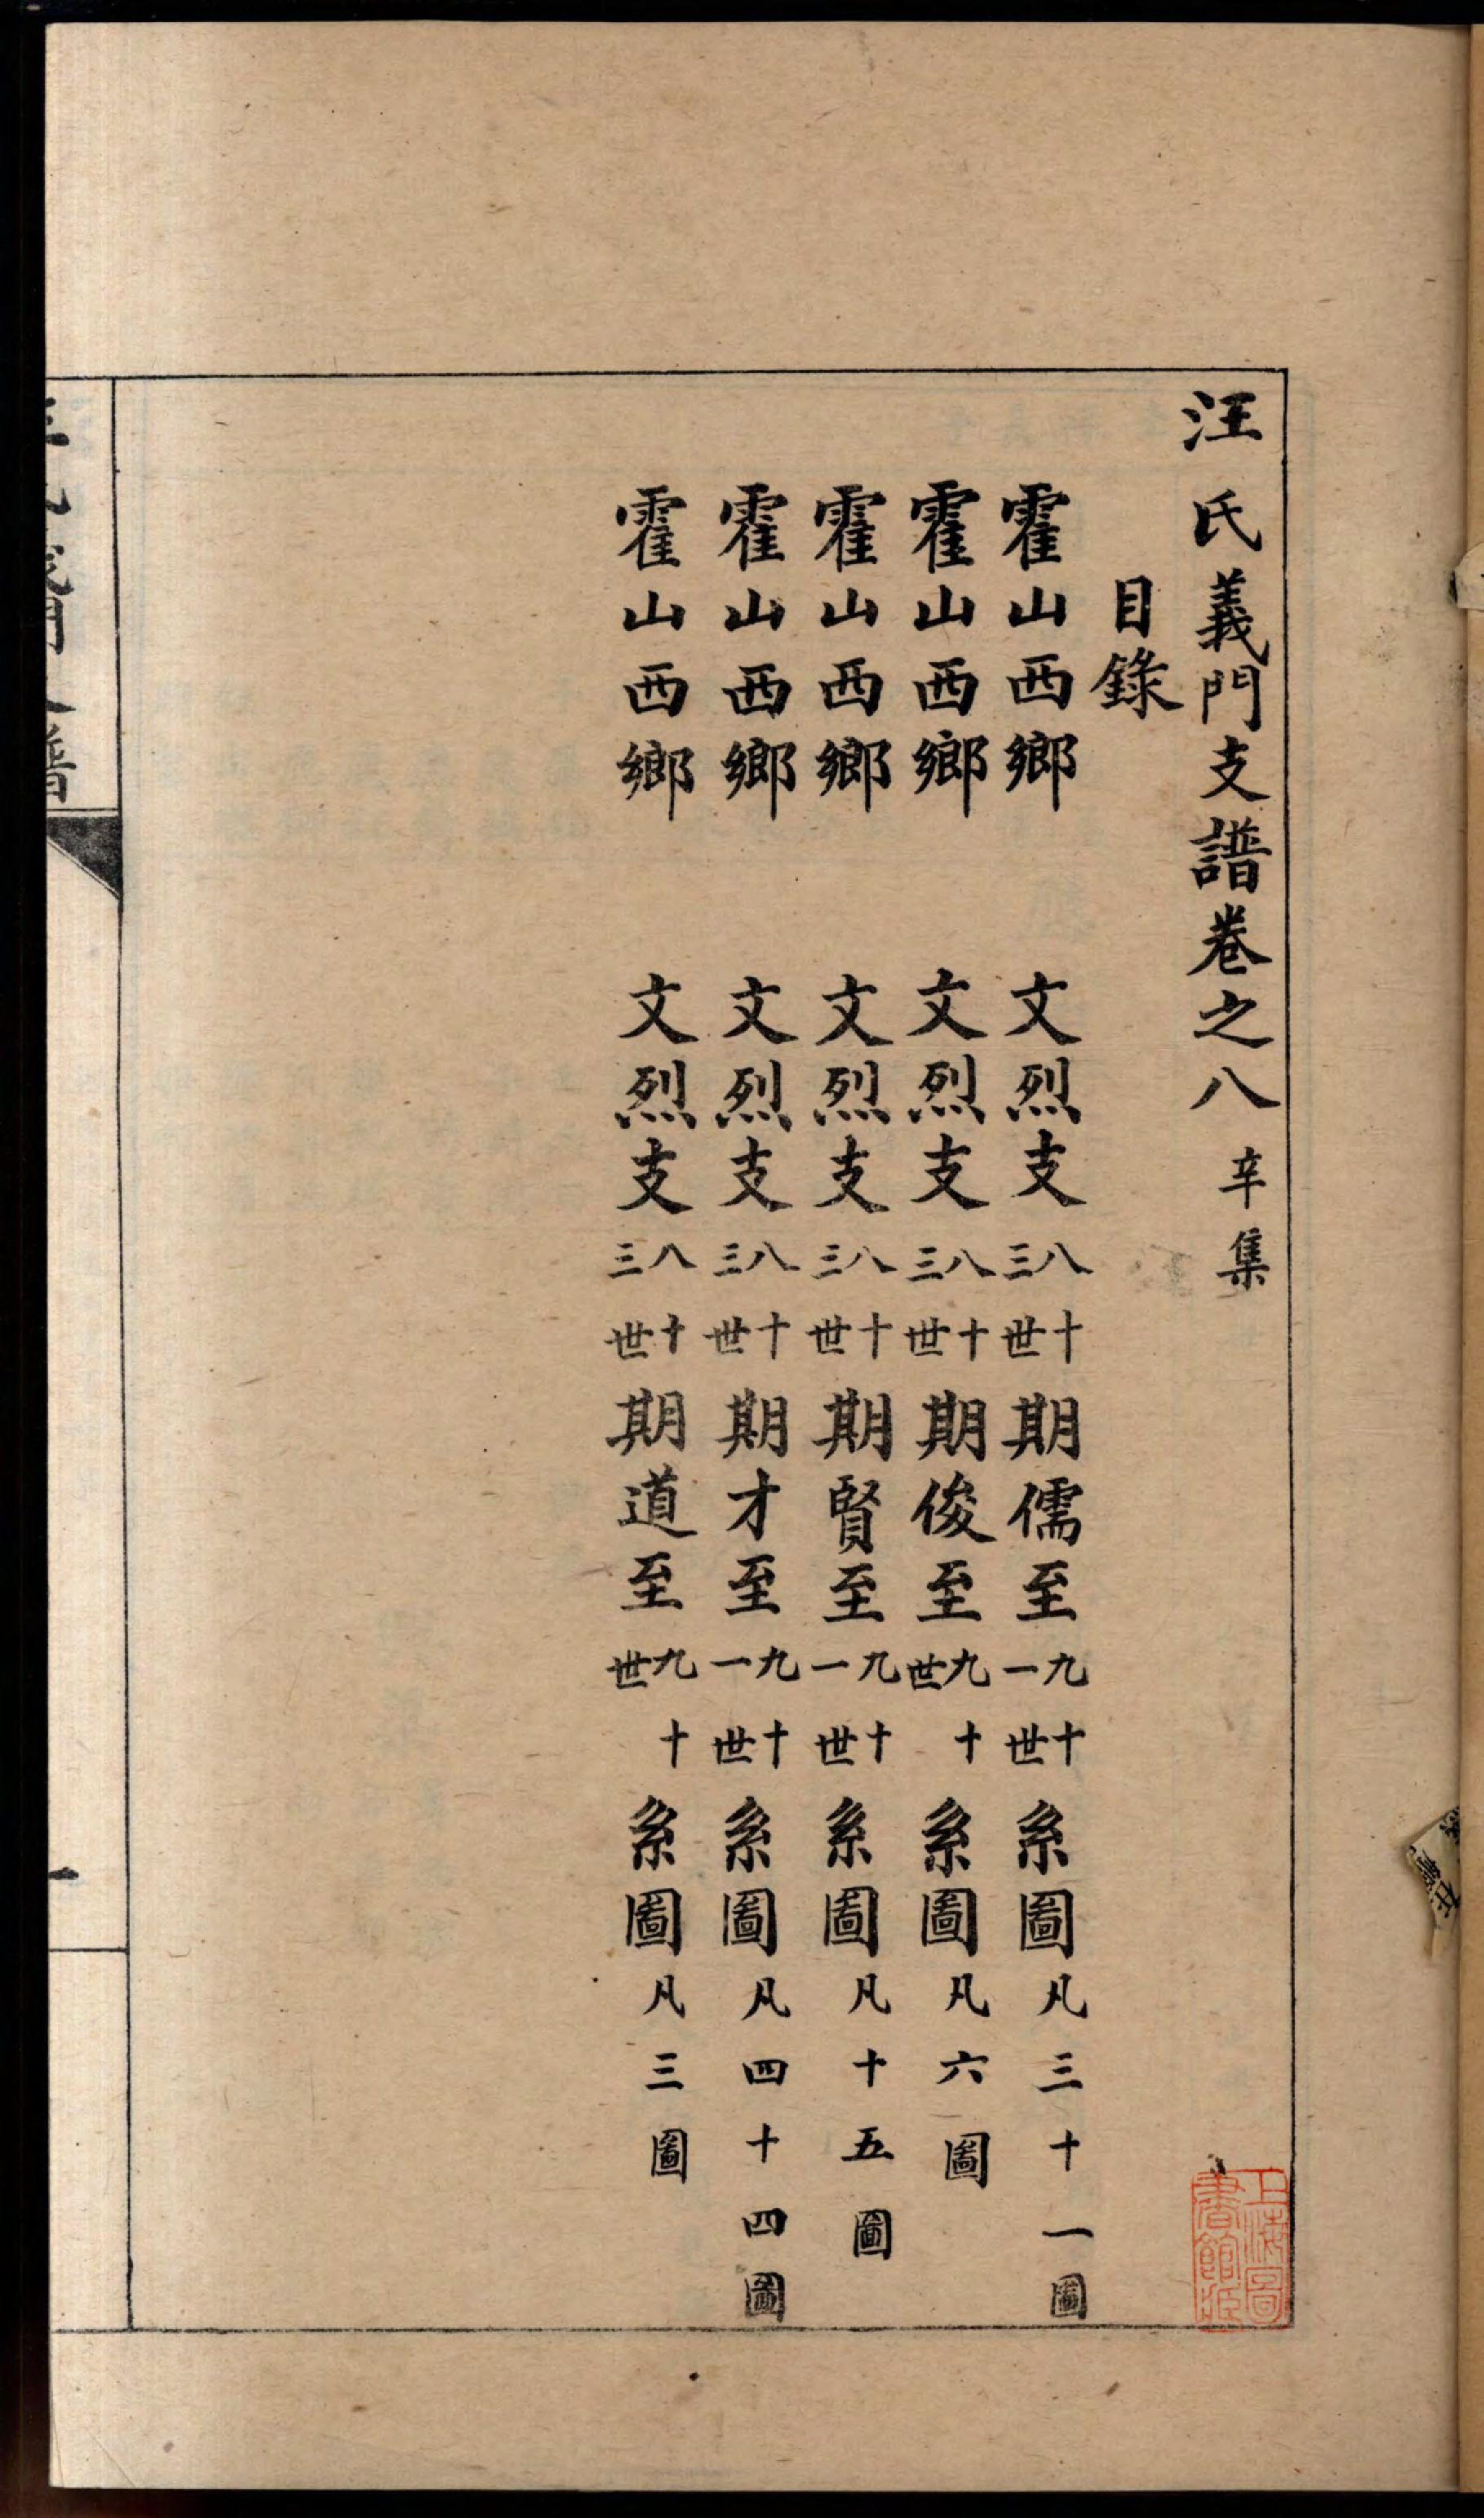 汪氏義門支譜卷之八 辛集
目錄
霍山西鄉 文烈支八十三世期儒至九十一世系圖凡三十一圖
霍山西鄉 文烈支八十三世期俊至九十世系圖凡六圖
霍山西鄉 文烈支八十三世期賢至九十一世系圖凡十五圖
霍山西鄉 文烈支八十三世期才至九十一世系圖凡四十四圖
霍山西鄉 文烈支八十三世期道至九十世系圖凡三圖
上海圖書館藏